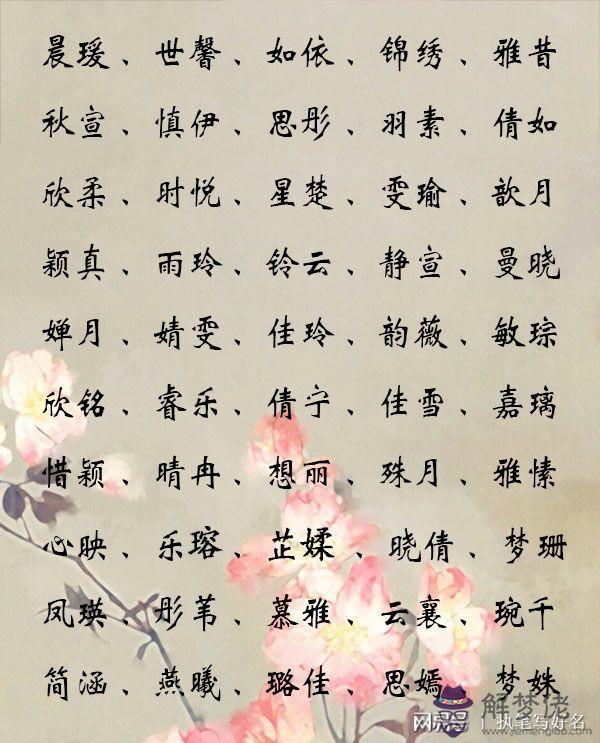 晨瑗、世馨、如依、锦绣、雅昔
秋宣、慎伊、思彤、羽素、倩如
欣柔、时悦、星楚、雯瑜、歆月
颖真、雨玲、铃云、静宣、曼晓
婵月、婧雯、佳玲、韵薇、敏琮
欣铭、睿乐、倩宁、佳雪、嘉璃
惜颖、晴冉、想丽、殊月、雅愫
心映、乐瑢、芷媃、晓倩、梦珊
凤瑛、彤苇、慕雅、云襄、琬千
简涵、燕曦、璐佳、思嫣、梦姝
解梦佬
网易号 | 执笔写好名
www.jiemenglao.com